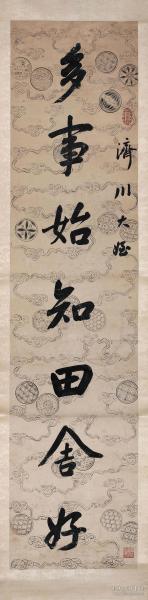 多事始知田舍好
濟川大姪